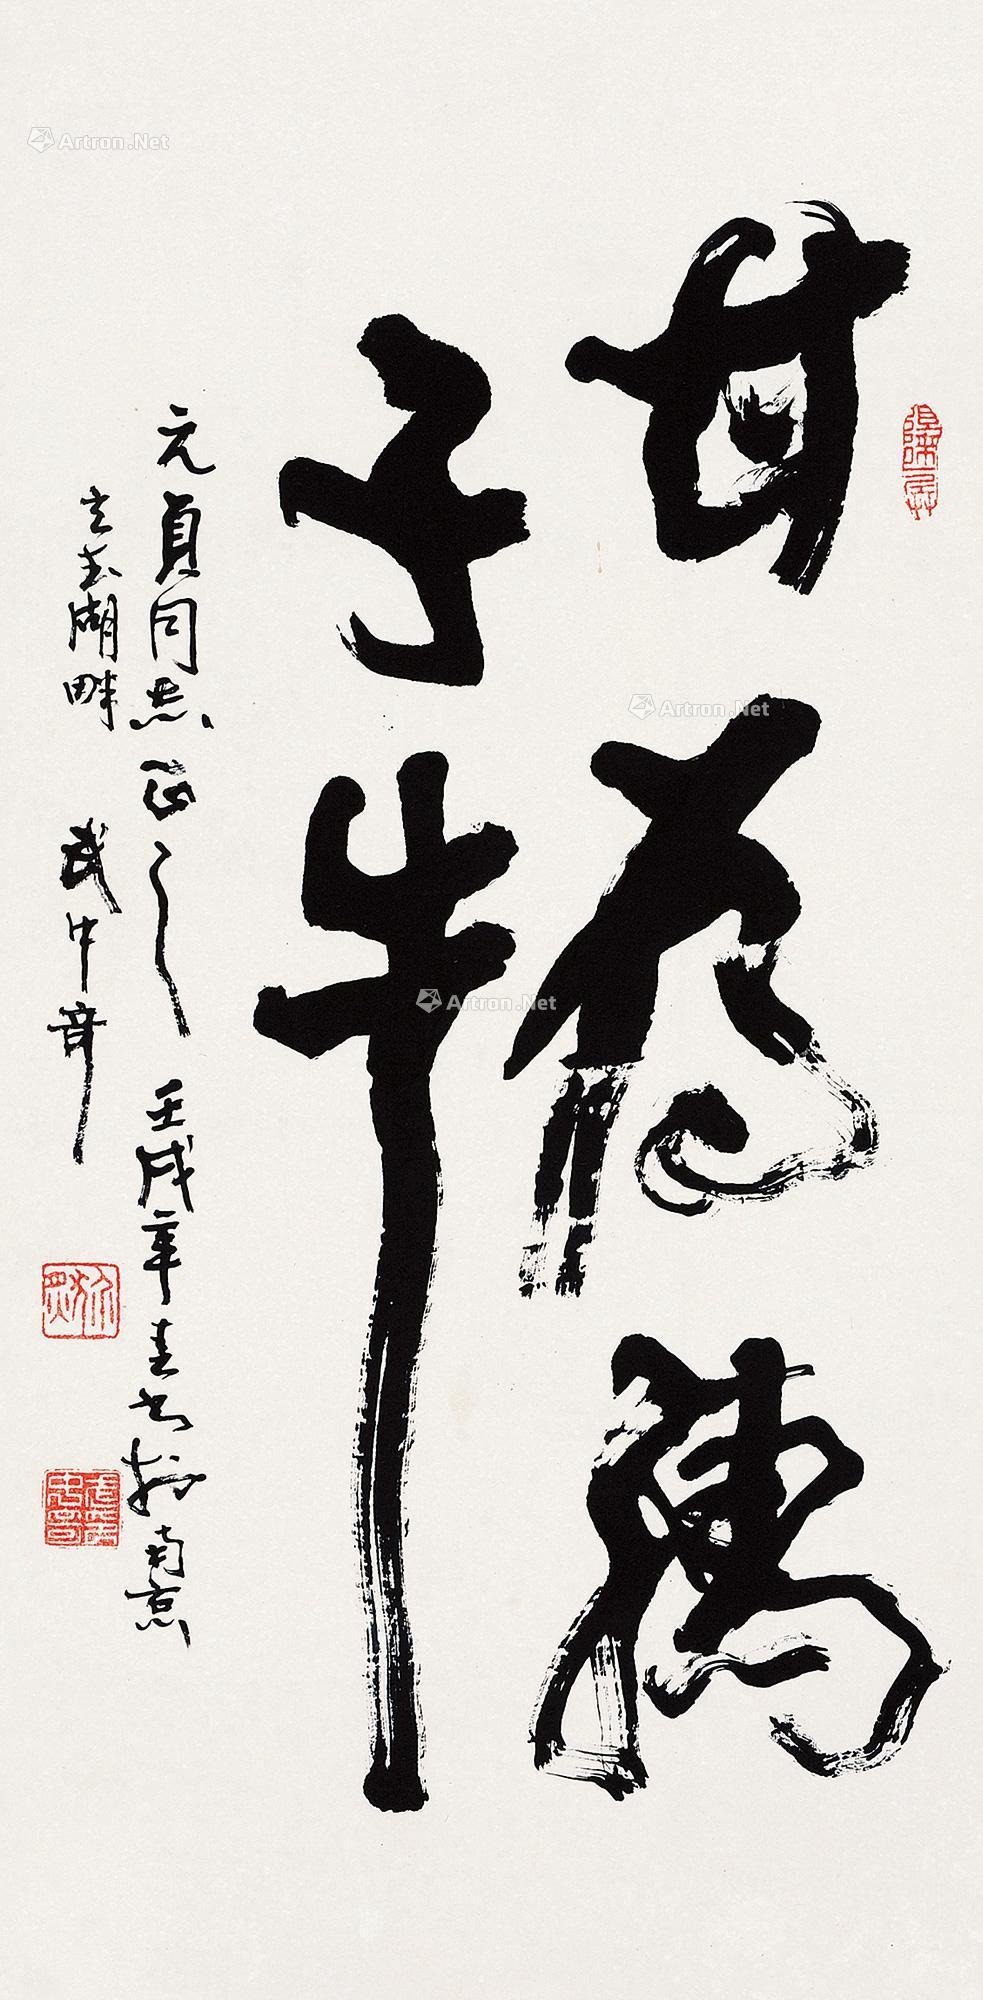 甘為孺
子牛
元貞同志正之 壬戌年春书於南京
玄武湖畔 武中奇
Artron.Net
Artron.Net
Artron.Net